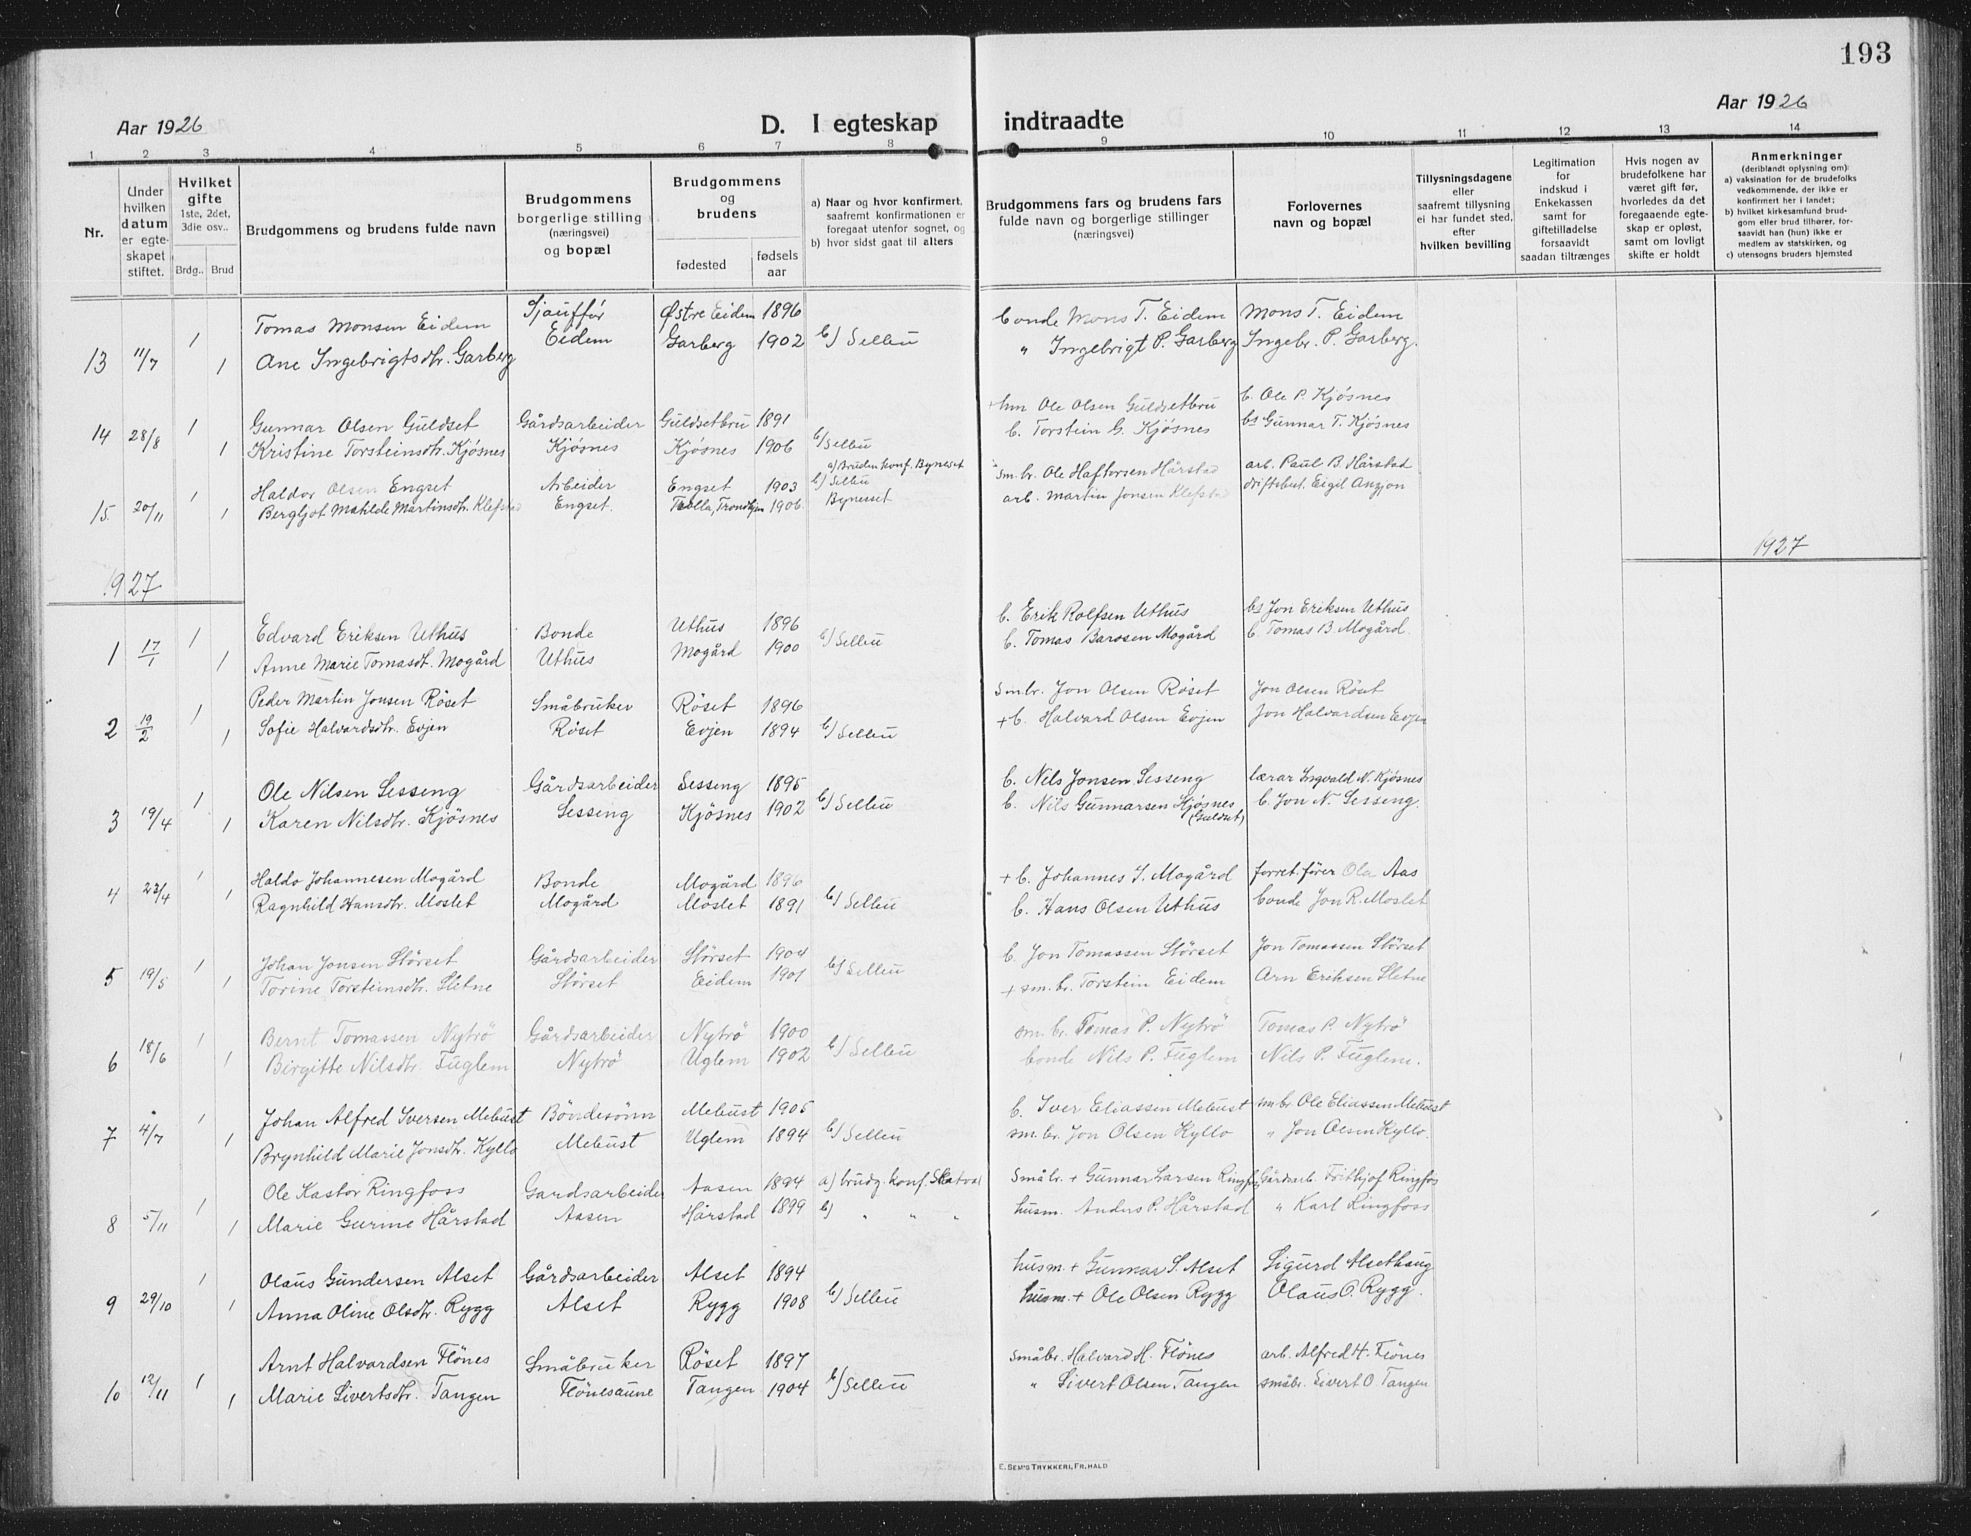 193
Aar 1926
D. I egteskap indtraadte
Aar 1926
1 2 3 4 5 6 7 8 9 10 11 12 13 14
Nr.
Under hvilken datum er egteskapet stiftet.
Hvilket gifte 1ste, 2det, 3die osv..
Brdg.. Brud
Brudgommens og brudens fulde navn
Brudgommens borgerlige stilling (næringsvei) og bopæl
Brudgommens og brudens
fødested
fødsels aar
a) Naar og hvor konfirmert, saafremt konfirmationen er foregaat utenfor sognet, og
b) hvor sidst gaat til alters
Brudgommens fars og brudens fars fulde navn og borgerlige stillinger (næringsvei)
Forlovernes navn og bopæl
Tillysningsdagene eller saafremt tillysning ei har fundet sted, efter hvilken bevilling
Legitimation for indskud i Enkekassen samt for giftetilladelse forsaavidt saadan tiltrænges
Hvis nogen av brudefolkene har været gift før, hvorledes da det foregaaende egteskap er opløst, samt om lovligt skifte er holdt
Anmerkninger (deriblandt oplysning om):
a) vaksination for de brudefolks vedkommende, der ikke er konfirmert her i landet;
b) hvilket kirkesamfund brudgom eller brud tilhører, forsaavidt han (hun) ikke er medlem av statskirken, og
c) utensogns bruders hjemsted
Tomas Monsen Eidem Sjauffør Østre Eidem 1896 bonde Mons T. Eidem Mons T. Eidem
13 11/7 1 1 Ane Ingebrigtsdtr. Garberg Eidem Garberg 1902 b) Selbu " Ingebrigt P. Garberg Ingebr. P. Garberg.
14 28/8 1 Gunnar Olsen Guldset Gårdsarbeider Guldsetbru 1891 + hm Ole Olsen Guldsetbru b. Ole P. Kjøsnes
1 Kristine Torsteinsdtr. Kjøsnes Kjøsnes Kjøsnes 1906 b) Selbu b. Torstein G. Kjøsnes bs Gunnar T. Kjøsnes
a) Bruden konf. Byneset
Haldor Olsen Engset Arbeider Engset 1903 b) Selbu sm. br. Ole Haftorsen Hårstad arb. Paul B. Hårstad
15. 20/11 1 Bergljot Matilde Martinsdtr. Klefstad Engset. Tolla, Trondhjem 1906. Bynesset arb. Martin Jonsen Klefstad driftsbest. Eigil Anzjon
1927
1927
Edvard Eriksen Uthus Bonde Uthus 1896 b. Erik Rolfsen Uthus bs Jon Eriksen Uthus
1 17/1 1 1 Anne Marie Tomasdtr. Mogård Uthus Mogård 1900 b) Selbu b. Tomas Barosen Mogård b. Tomas B. Mogård.
Peder Martin Jonsen Röset Småbruker Röset 1896 sm. br. Jon Olsen Röset Jon Olsen Röset
2 19/2 1 1 Sofie Halvardsdtr. Evjen Röset Evjen 1894 b) Selbu + b. Halvard Olsen Evjen Jon Halvardsen Evjen
Ole Nilsen Sesseng Gårdsarbeider Sesseng 1895 b. Nils Jonsen Sesseng lærar Ingvald N. Kjøsnes
3 19/4 1 1 Karen Nilsdtr. Kjøsnes Sesseng Kjøsnes 1902 b) Selbu b. Nils Gunnarsen Kjøsnes (Guldset) b. Jon N. Sesseng.
Haldo Johannesen Mogård Bonde Mogård 1896 + b. Johannes J. Mogård forret.förer Ola Aas
4 23/4 1 1 Ragnhild Hansdtr. Moslet Mogård Moslet 1891 b) Selbu b. Hans Olsen Uthus bonde Jon R. Moslet
Johan Jonsen Störset Gårdsarbeider Störset 1904 b. Jon Tomassen Störset Jon Tomassen Störset
5 19/5 1 1 Torine Torsteinsdtr. Sletne Störset Eidem 1901 b) Selbu + sm. br. Torstein Eidem Arn Eriksen Sletne
Bernt Tomassen Nytrö Gårdsarbeider Nytrö 1900 sm. br. Tomas P. Nytrö Tomas P. Nytrö
6 18/6 1 1 Birgitte Nilsdtr. Fuglem Nytrö Uglem 1902 b) Selbu bonde Nils P. Fuglem Nils P. Fuglem.
Johan Alfred Iversen Mebust Böndesönn Mebust 1905 b. Iver Eliassen Mebust sm br. Ole Eliassen Mebust
7 4/7 1 1 Brynhild Marie Jonsdtr. Kyllo Mebust Uglem 1894 b) Selbu sm. br. Jon Olsen Kyllo " Jon Olsen Kyllo.
Ole Kastor Ringfoss Gardsarbeider Aasen 1894 a) brudg. konf. Skatval Småbr. + Gunnar Larsen Ringfos Gårdsarb. Frithjof Ringfos
8 5/11 1 1 Marie Gurine Hårstad Aasen Hårstad 1899 b) " " " husm. Anders P. Hårstad " Karl Ringfoss
Olaus Gundersen Alset Gårdsarbeider Alset 1894 husm + Gunnar S. Alset Sigurd Alsethaug
9 29/10 1 1 Anna Oline Olsdtr. Rygg Alset Rygg 1908 b) Selbu husm. + Ole Olsen Rygg Olaus O. Rygg.
Arnt Halvardsen Flönes Småbruker Röset 1897 småbr. Halvard H. Flönes arb. Alfred H. Flönes
10 12/11 1 1 Marie Sivertsdtr. Tangen Flönesaune Tangen 1904 b) Selbu " Sivert Olsen Tangen småbr. Sivert O Tangen
E. SEM'S TRYKKERI, FR. HALD